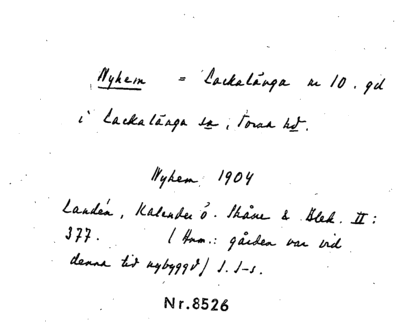 Nyhem = Lackalänga nr 10. gd
i Lackalänga sn, Torna hd.
Nyhem 1904
Landén, Kalender ö. Skåne & Blek. II:
377. (Anm.: gården var vid
denna tid nybyggd) S. S-s.
Nr.8526